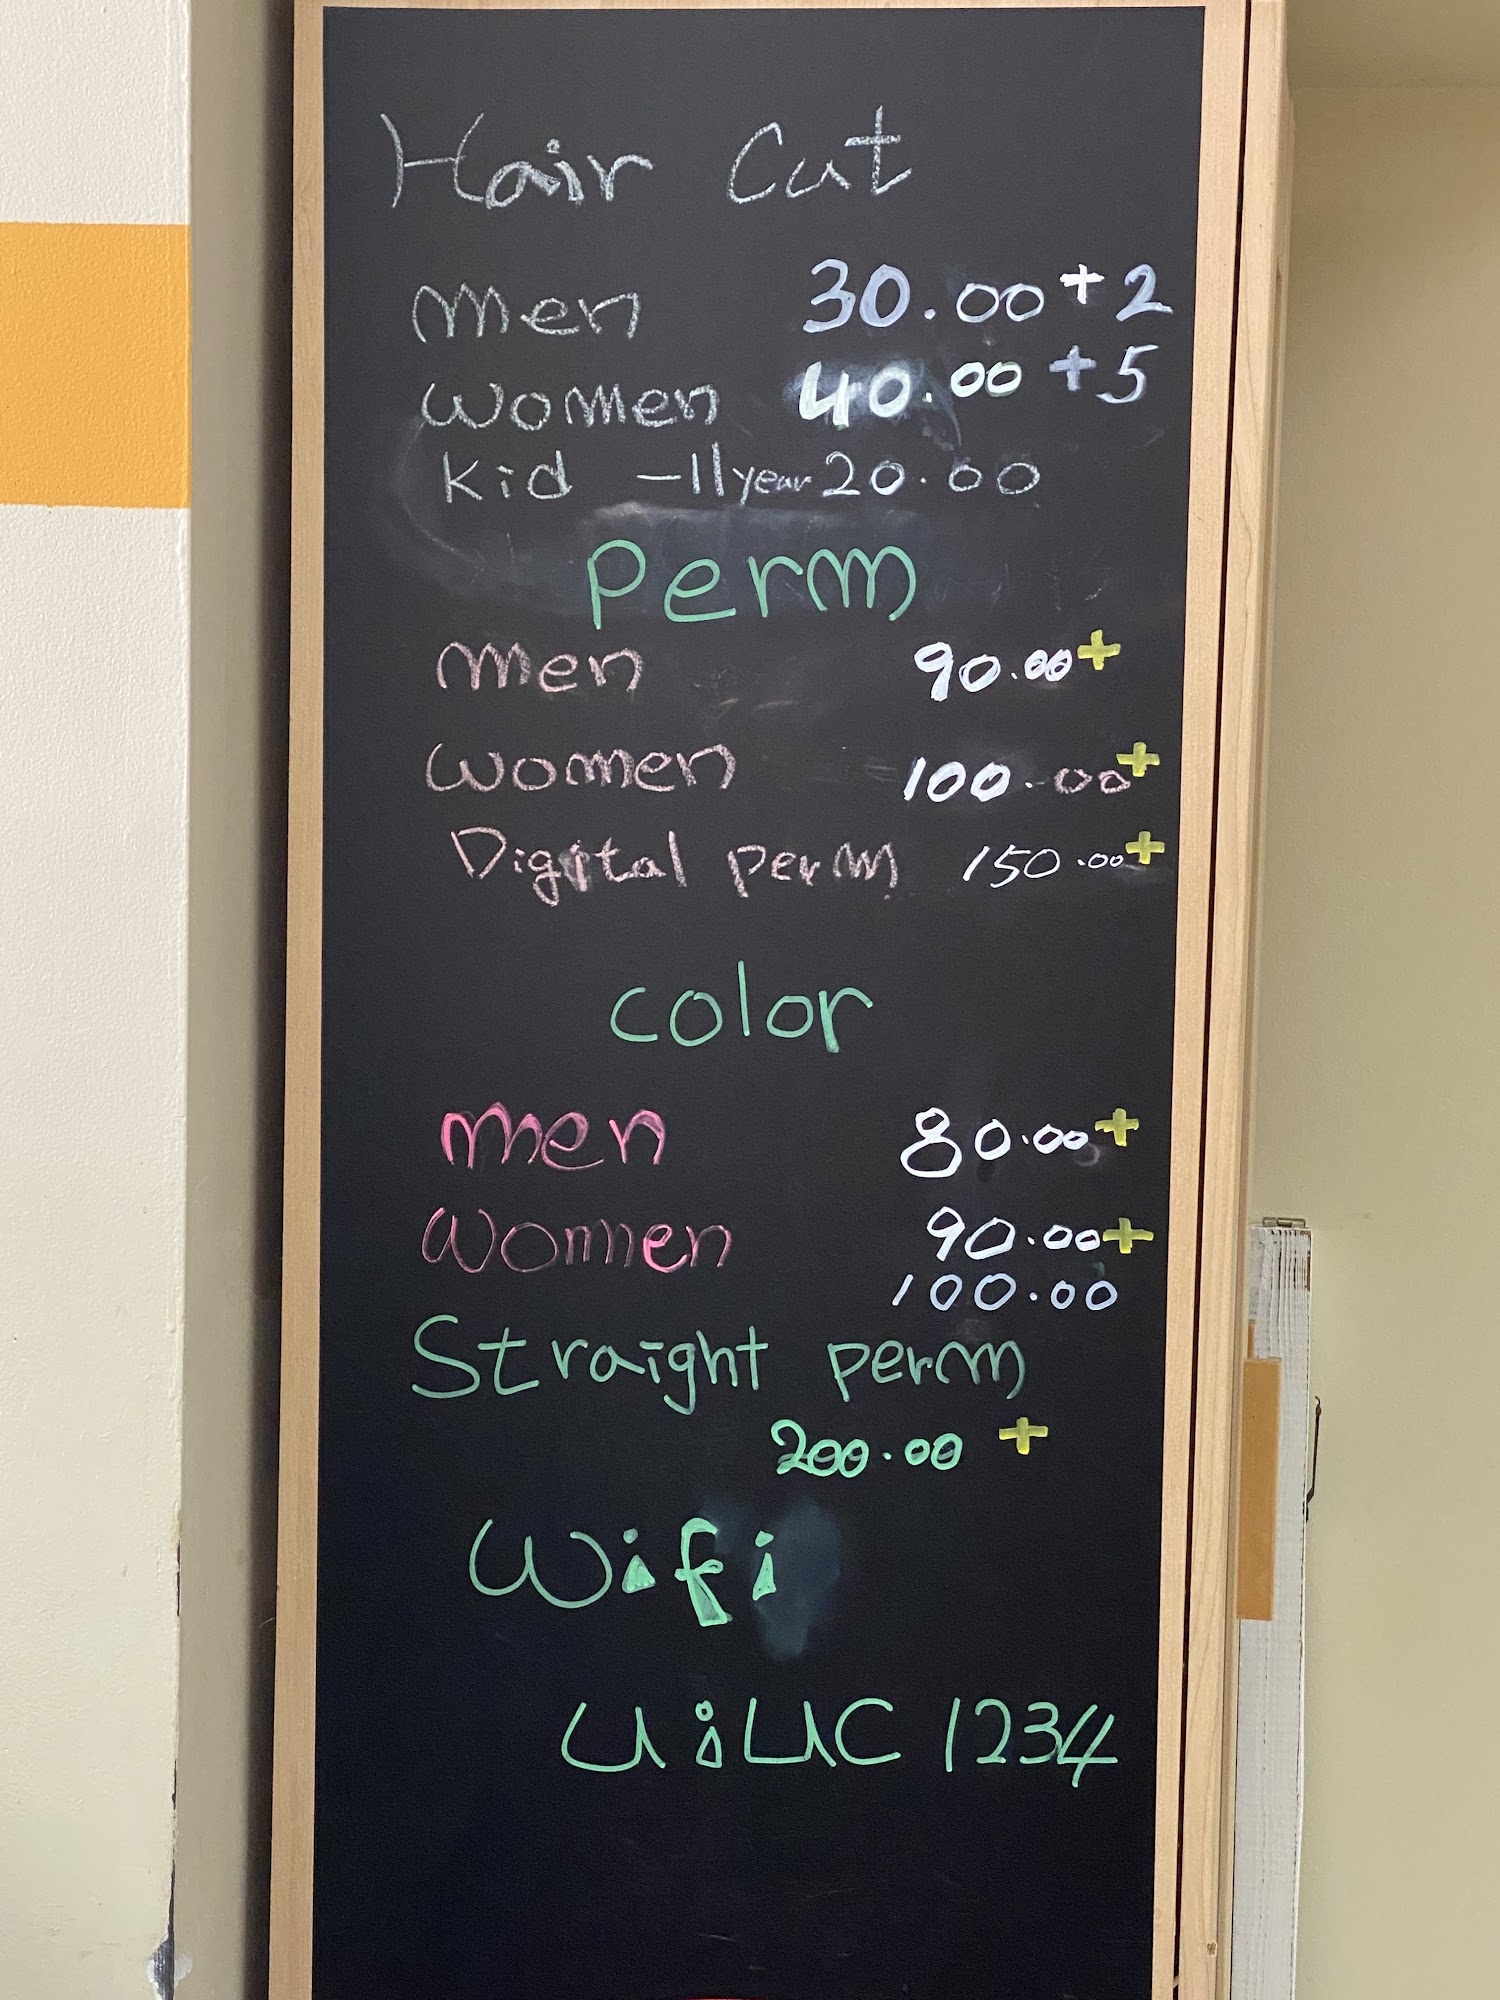 Hair Cut
men 30.00 + 2
women 40.00 + 5
Kid -11year 20.00
Perm
men 90.00+
women 100.00+
Digital perm 150.00+
color
men 80.00+
women 90.00+
100.00
Straight perm
200.00 +
Wifi
UiUC 1234